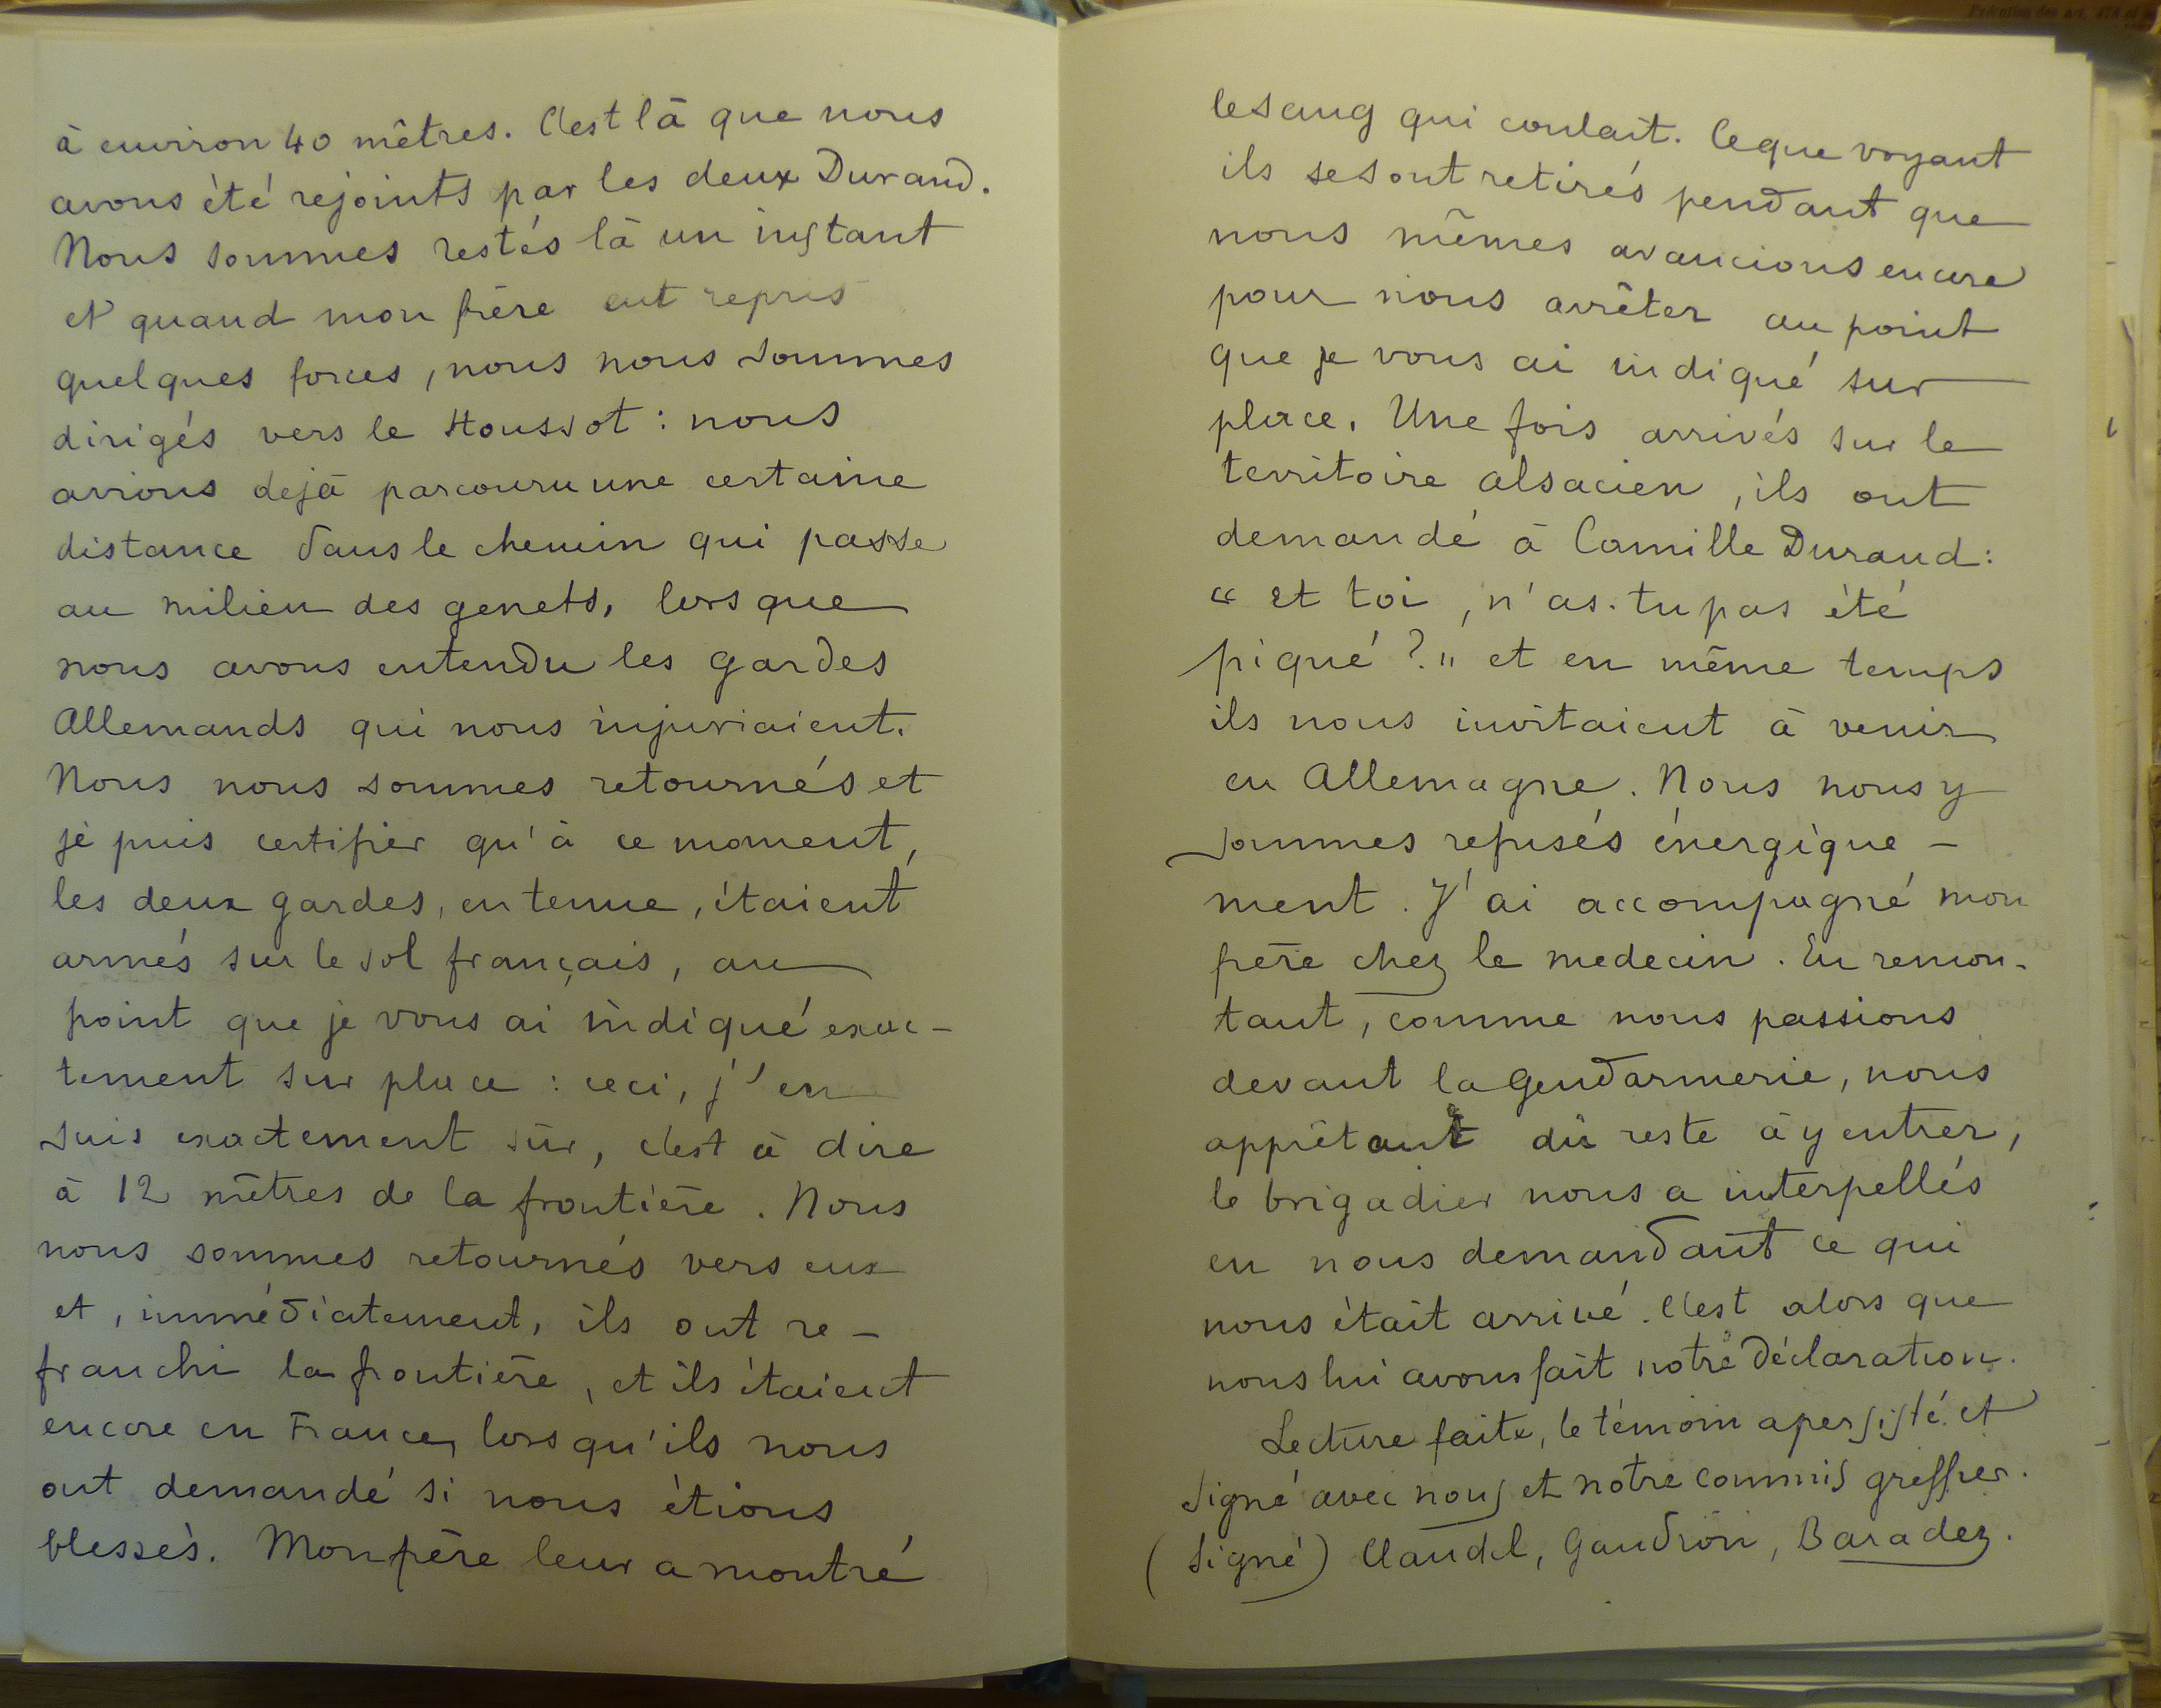 à environ 40 mètres. C'est là que nous
avons été rejoints par les deux Durand.
Nous sommes restés là un instant
et quand mon père eut repris
quelques forces, nous nous sommes
dirigés vers le Houssot : nous
avions dejà parcouru une certaine
distance dans le chemin qui passe
au milieu des genets, lorsque
nous avons entendu les gardes
Allemands qui nous injuriaient.
Nous nous sommes retournés et
je puis certifier qu'à ce moment,
les deux gardes, en tenue, étaient
armés sur le sol français, au
point que je vous ai indiqué exac-
tement sur place : ceci, j'en
suis exactement sûr, c'est à dire
à 12 mètres de la frontière. Nous
nous sommes retournés vers eux
et, immédiatement, ils ont re-
franchi la frontière, et ils étaient
encore en France, lorsqu'ils nous
ont demandé si nous étions
blessés. Mon père leur a montré
le sang qui coulait. Ce que voyant
ils se sont retirés pendant que
nous mêmes avancions encore
pour nous arrêter au point
que je vous ai indiqué sur
place. Une fois arrivés sur le
territoire alsacien, ils ont
demandé à Camille Durand :
" et toi, n'as-tu pas été
piqué ? " et en même temps
ils nous invitaient à venir
en Allemagne. Nous nous y
sommes refusés énergique-
ment. J'ai accompagné mon
père chez le medecin. En remon-
tant, comme nous passions
devant la gendarmerie, nous
apprêtant du reste à y entrer,
le brigadier nous a interpellés
en nous demandant ce qui
nous était arrivé. C'est alors que
nous lui avons fait notre déclaration.
Lecture faite, le témoin a persisté et
signé avec nous et notre commis greffier.
(Signé) Claudel, Gaudron, Baradez.